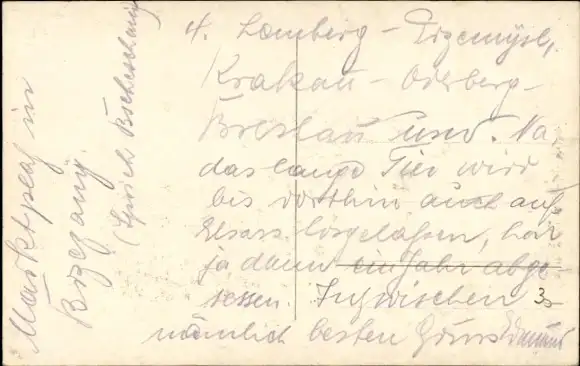 Marktplatz in
Brzezany.
(Sprich Bscheschani)
4. Lemberg - Przemysl,
Krakau - Oderberg -
Breslau und. Na
das lange Tier wird
bis dorthin auch auf
Elsass losgelassen, hat
ja dann ein Jahr abge-
sessen. Inzwischen
nämlich besten Gruss Edmund
30